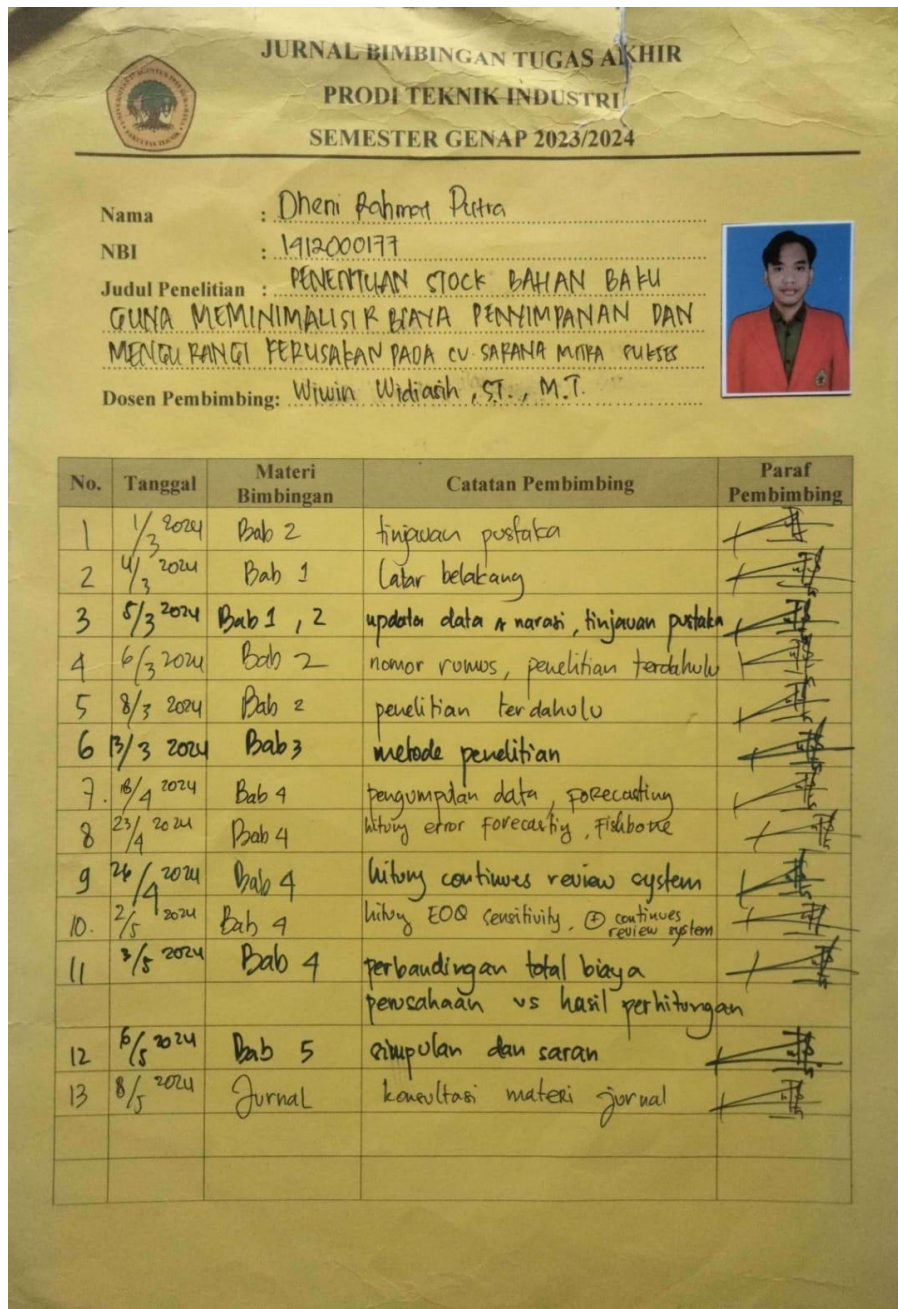 JURNAL BIMBINGAN TUGAS AKHIR
PRODI TEKNIK INDUSTRI
SEMESTER GENAP 2023/2024
Nama : Dheni Rahmat Putra
NBI : 1912000177
Judul Penelitian : PENENTUAN STOCK BAHAN BAKU
GUNA MEMINIMALISIR BIAYA PENYIMPANAN DAN
MENGURANGI KERUSAKAN PADA CV. SARANA MITRA SUKSES
Dosen Pembimbing: Wiwin Widiasih, ST., M.T.
No. Tanggal Materi Bimbingan Catatan Pembimbing Paraf Pembimbing
1 1/3 2024 Bab 2 tinjauan pustaka
2 4/3 2024 Bab 1 Latar belakang
3 5/3 2024 Bab 1, 2 update data & narasi, tinjauan pustaka
4 6/3 2024 Bab 2 nomor rumus, penelitian terdahulu
5 8/3 2024 Bab 2 penelitian terdahulu
6 13/3 2024 Bab 3 metode penelitian
7. 18/4 2024 Bab 4 pengumpulan data, forecasting
8 23/4 2024 Bab 4 hitung error forecasting, Fishbone
9 26/4 2024 Bab 4 hitung continues review system
10. 2/5 2024 Bab 4 hitung EOQ sensitivity, ⊕ continues review system
11 3/5 2024 Bab 4 perbandingan total biaya
perusahaan vs hasil perhitungan
12 6/5 2024 Bab 5 simpulan dan saran
13 8/5 2024 Jurnal konsultasi materi jurnal